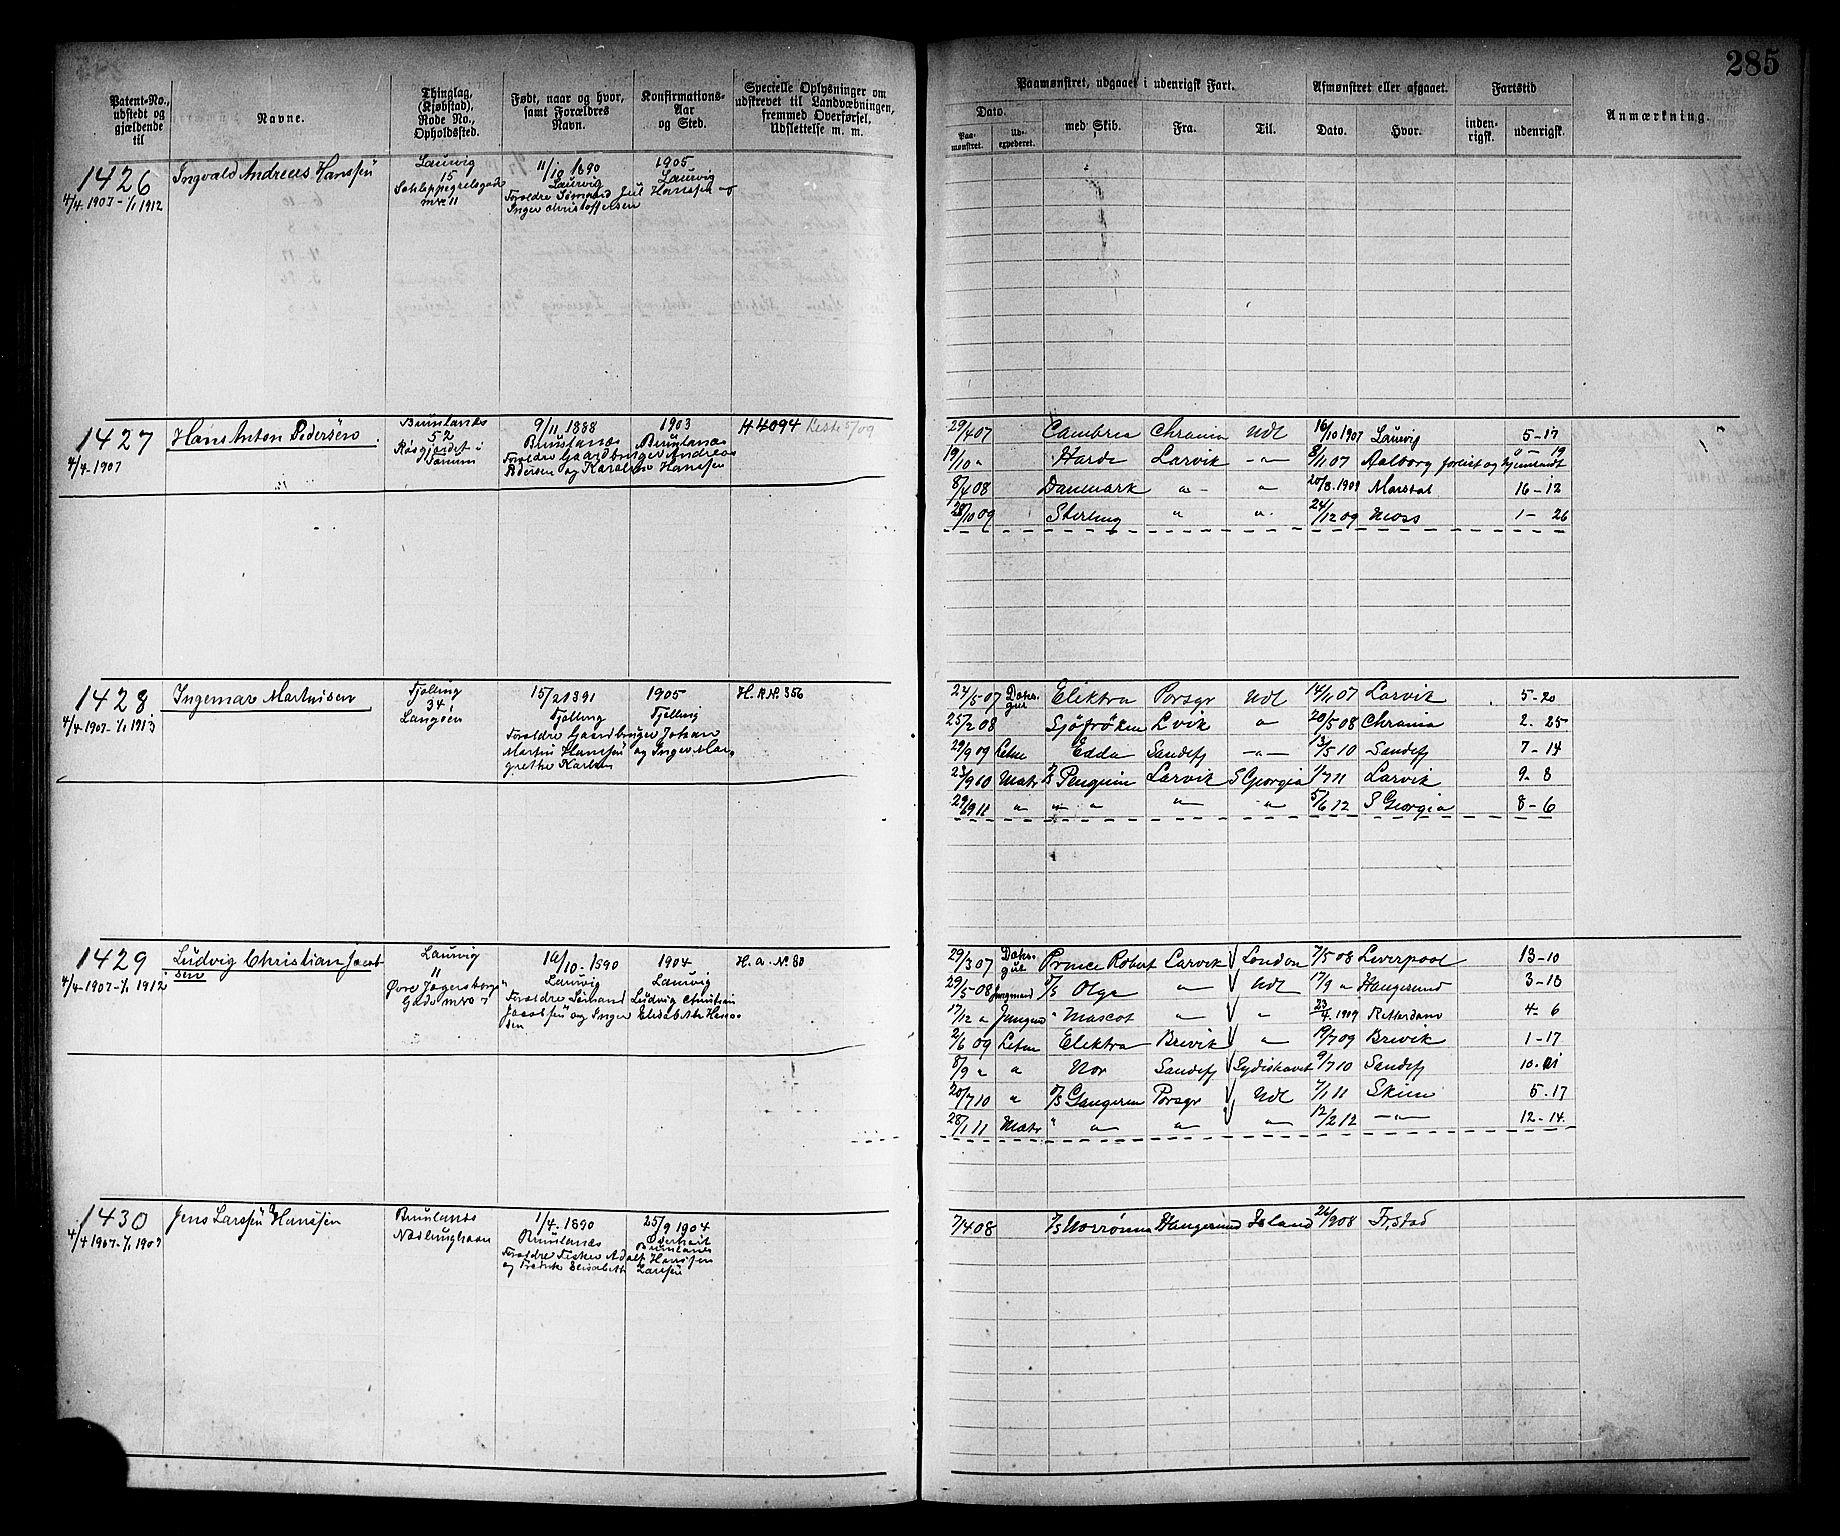 285
Patent-No., udstedt og gjældende til
Navne.
Thinglag, (Kjøbstad), Rode No., Opholdssted.
Født, naar og hvor, samt Forældres Navn.
Konfirmations-Aar og Sted.
Specielle Oplysninger om udskrevet til Landvæbningen, fremmed Overførsel, Udslettelse m. m.
Paamønstret, udgaaet i udenrigsk Fart.
Afmønstret eller afgaaet.
Fartstid
Anmærkning.
Dato.
Paamønstret.
Udexpederet.
med Skib.
Fra.
Til.
Dato.
Hvor.
indenrigsk.
udenrigsk.
1426 Ingvald Andreas Hanssen Laurvig 11/10 1890 1905
4/4 1907 - 1/1 1912
15 Laurvig Laurvig
nro 11 Forældre Jul Hanssen og
Inger Christoffersen
1427 Hans Anton Pedersen Brunlanæs 9/11 1888 1903 H 4094
4/4 1907
52 Brunlanæs Brunlanæs
Forældre Gaardbruger Andreas
Pedersen og Hanssen
29/4 07 Cambria Chrania Udl 16/10 1907 Laurvig 5-17
19/10 " Larvik - " - 8/11 07 Aalborg 19
8/4 08 Danmark " - " 20/8 1909 Marstal 16-12
28/10 09 Sterling " " 24/12 09 Moss 1-26
1428 Ingemar Martinsen Fjølling 15/2 1891 1905 H. A No. 356
4/4 1907 - 1/1 1913
34 Fjølling Fjølling
Langøen Forældre Gaardbruger Johan
Martin Hanssen og Inger Mar
grethe Karlsen
24/5 07 Elektra Porsgr Udl 14/11 07 Larvik 5-20
25/2 08 Sjøfrøken Lvik " 20/5 08 Chrania 2-25
29/9 09 Letm Edda Sandefj - " - 13/5 10 Sandefj 7-14
23/9 10 Matr Penguin Larvik S Georgia 1/7 11 Larvik 9-8
29/9 11 " " " " " 5/6 12 S Georgia 8-6
1429 Ludvig Christian Jacob Laurvig 10/10-1890 1904 H. a. No 80
sen
4/4 1907 - 1/1 1912
11 Laurvig Laurvig
Øvre Jegersborg
Gade nro 7
Jacobsen og Inger Elisabeth Hans
sen
29/3 07 Prince Robert Larvik London 7/5 08 Liverpool 13-10
29/5 08 Jungmand Olga " Udl 17/9 " Haugesund 3-18
17/12 " Jungmd " Mascot " " 23/4 1909 Rotterdam 4-6
2/6 09 Letm Elektra Brevik " 19/7 09 Brevik 1-17
8/9 " " Nor Sandefj Sydishavet 9/7 10 Sandefj 10-
20/7 10 " Porsgr Udl 7/1 11 Skien 5-17
28/1 11 Matr " " " " 12/2 12 - " - 12-14
1430 Jens Larssen Hanssen Brunlanæs 1/4-1890 25/9 1904
4/4 1907 - 1/1 1909
Nevlunghavn Brunlanæs Østerhvit
Brunlanæs
Forældre Fisker Adolf Hanssen
og Fredrik Elisabeth Larssen
7/4 08 Norrønna Haugesund Island 26/9 08 Frstad